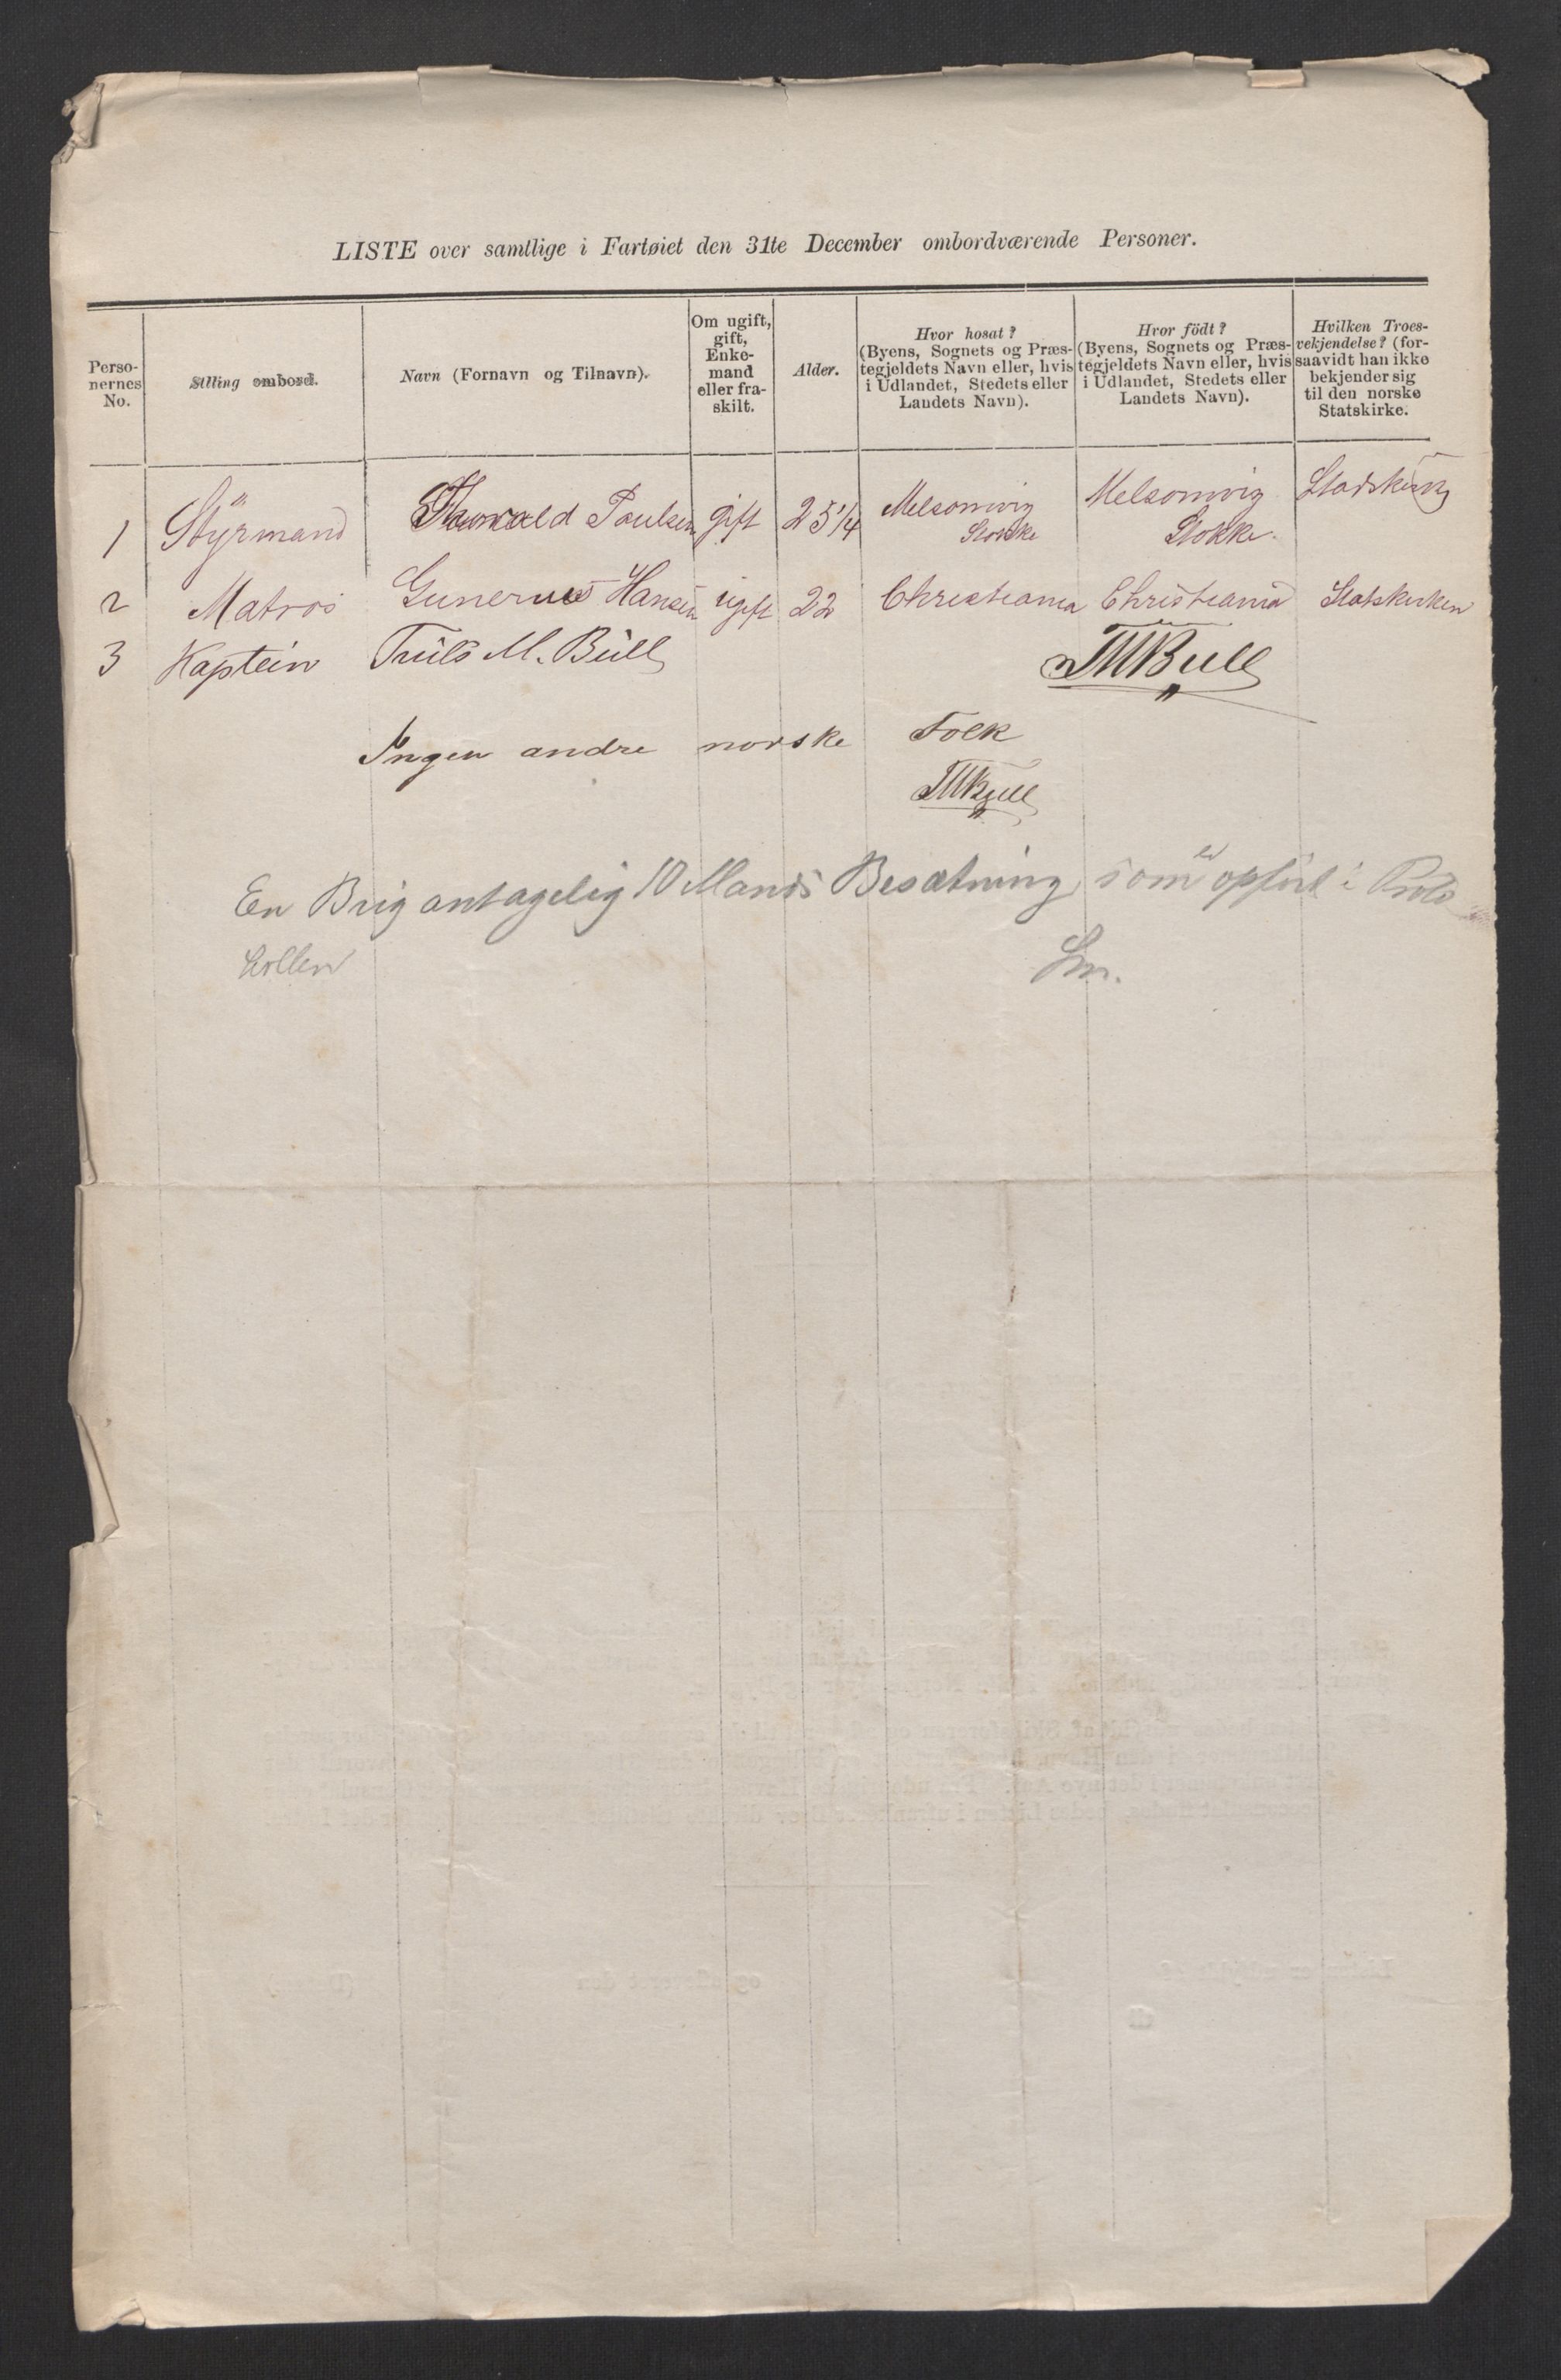 LISTE over samtlige i Fartøiet den 31te December ombordværende Personer.
Perso-
nernes
No.
Stilling ombord.
Navn (Fornavn og Tilnavn).
Om ugift,
gift,
Enke-
mand
eller fra-
skilt.
Alder.
Hvor bosat?
(Byens, Sognets og Præs-
tegjeldets Navn eller, hvis
i Udlandet, Stedets eller
Landets Navn).
Hvor födt?
(Byens, Sognets og Præs-
tegjeldets Navn eller, hvis
i Udlandet, Stedets eller
Landets Navn).
Hvilken Troes-
bekjendelse? (for-
saavidt han ikke
bekjender sig
til den norske
Statskirke.
1 Styrmand Thorvald Paulsen gift 25 1/4 Melsomvig Stokke Melsomvig Stokke.
2 Matros Gunerius Hansen ugift 22 Christiania Christiania Statskirken
3 Kaptein Truls M. Bull TMBull
Ingen andre norske Folk
TMBull
En Brig antagelig 10 Mands Besætning, som er opført i Proto
kollen